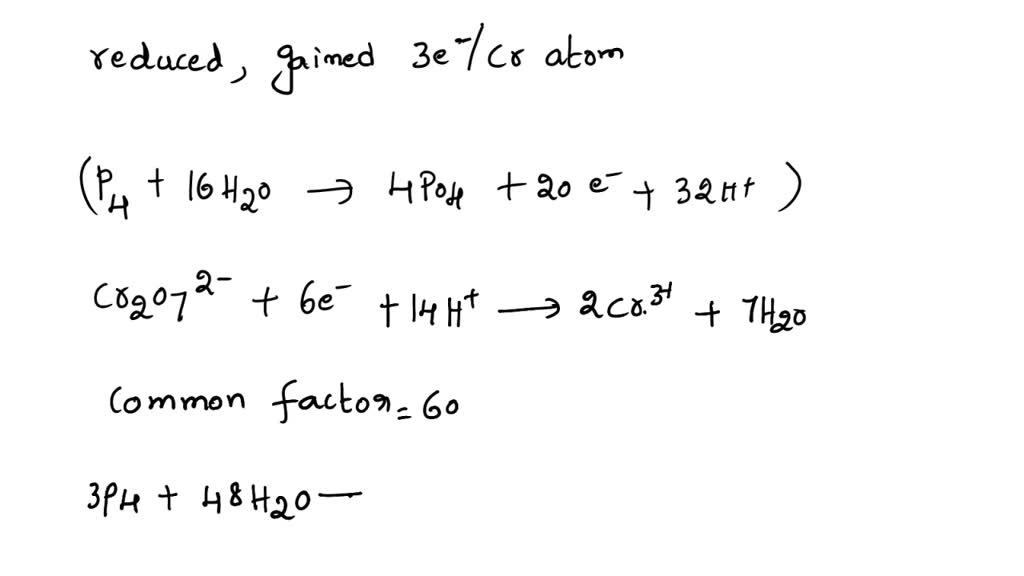 reduced, gained 3e⁻/Cr atom
(P₄ + 16H₂O → 4PO₄ + 20e⁻ + 32H⁺)
Cr₂O₇²⁻ + 6e⁻ + 14H⁺ → 2Cr.³⁺ + 7H₂O
Common factor = 60
3P₄ + 48H₂O —